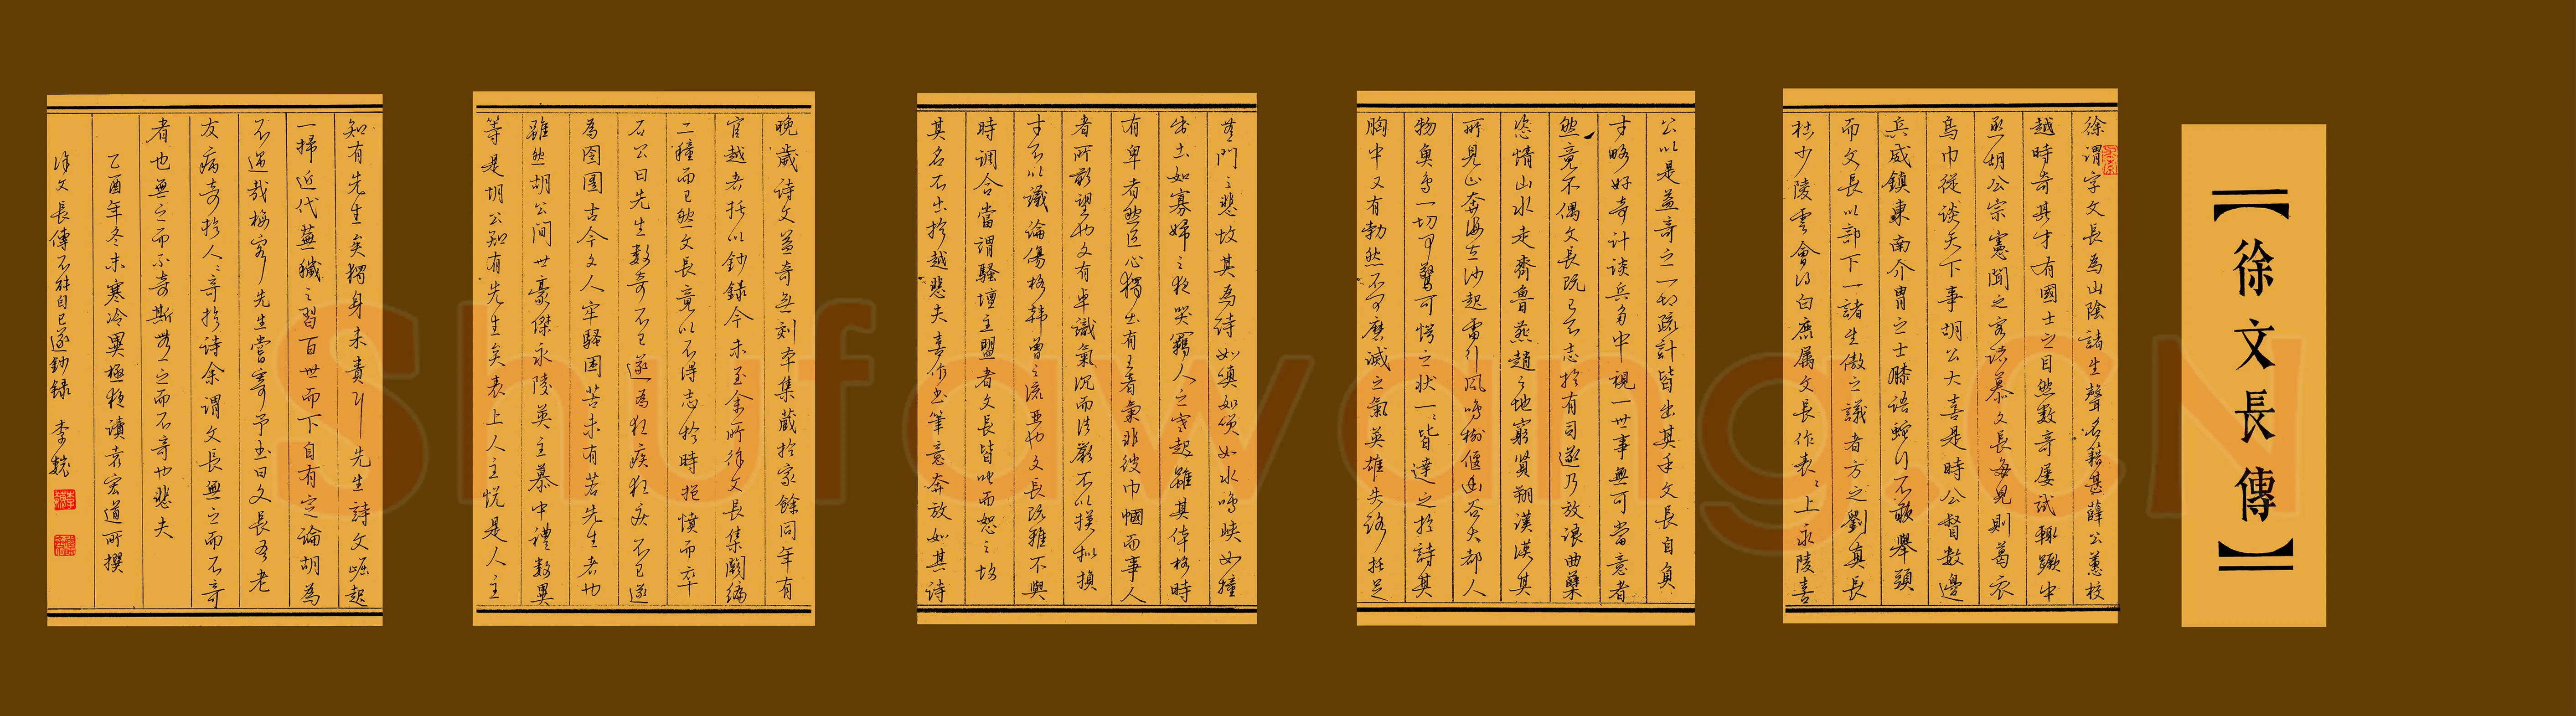 【徐文長傳】
徐渭字文長為山陰諸生聲名籍甚薛公蕙校
越時奇其才有國士之目然數奇屢試輒蹶中
丞胡公宗憲聞之客諸幕文長每見則葛衣
烏巾從談天下事胡公大喜是時公督數邊
兵威鎮東南介胄之士膝語蛇行不敢舉頭
而文長以部下一諸生傲之議者方之劉真長
杜少陵雲會得白鹿屬文長作表〻上永陵喜
公以是益奇之一切疏計皆出其手文長自負
才略好奇計談兵多中視一世事無可當意者
然竟不偶文長既已不志於有司遂乃放浪曲蘖
恣情山水走齊魯燕趙之地窮覽朔漠其
所見山奔海立沙起雷行風鳴樹偃幽谷大都人
物魚鳥一切可驚可愕之狀一〻皆達之於詩其
胸中又有勃然不可磨滅之氣英雄失路托足
無門之悲故其為詩如嗔如笑如水鳴峽如種
出土如寡婦之夜哭羈人之寒起雖其體格時
有卑者然匠心獨出有王者氣非彼巾幗而事人
者所敢望也文有卓識氣沉而法嚴不以摸擬損
才不以議論傷格韓曾之流亞也文長既雅不與
時調合當謂騷壇主盟者文長皆叱而怒之故
其名不出於越悲夫喜作書筆意奔放如其詩
晚歲詩文益奇無刻本集藏於家餘同年有
官越者托以鈔錄今未至余所徐文長集闕編
二種而已然文長竟以不得志於時抱憤而卒
石公曰先生數奇不已遂為狂疾狂疾不已遂
為囹圄古今文人牢騷困苦未有若先生者也
雖然胡公間世豪傑永陵英主幕中禮數異
等是胡公知有先生矣表上人主悅是人主
知有先生矣獨身未貴耳先生詩文崛起
一掃近代蕪穢之習百世而下自有定論胡為
不遇哉梅客生嘗寄予書曰文長吾老
友病奇於人〻奇於詩余謂文長無之而不奇
者也無之而不奇斯無之而不奇也悲夫
乙酉年冬末寒冷異極夜讀袁宏道所撰
徐文長傳不能自已遂鈔錄 李
Shufawang.CN